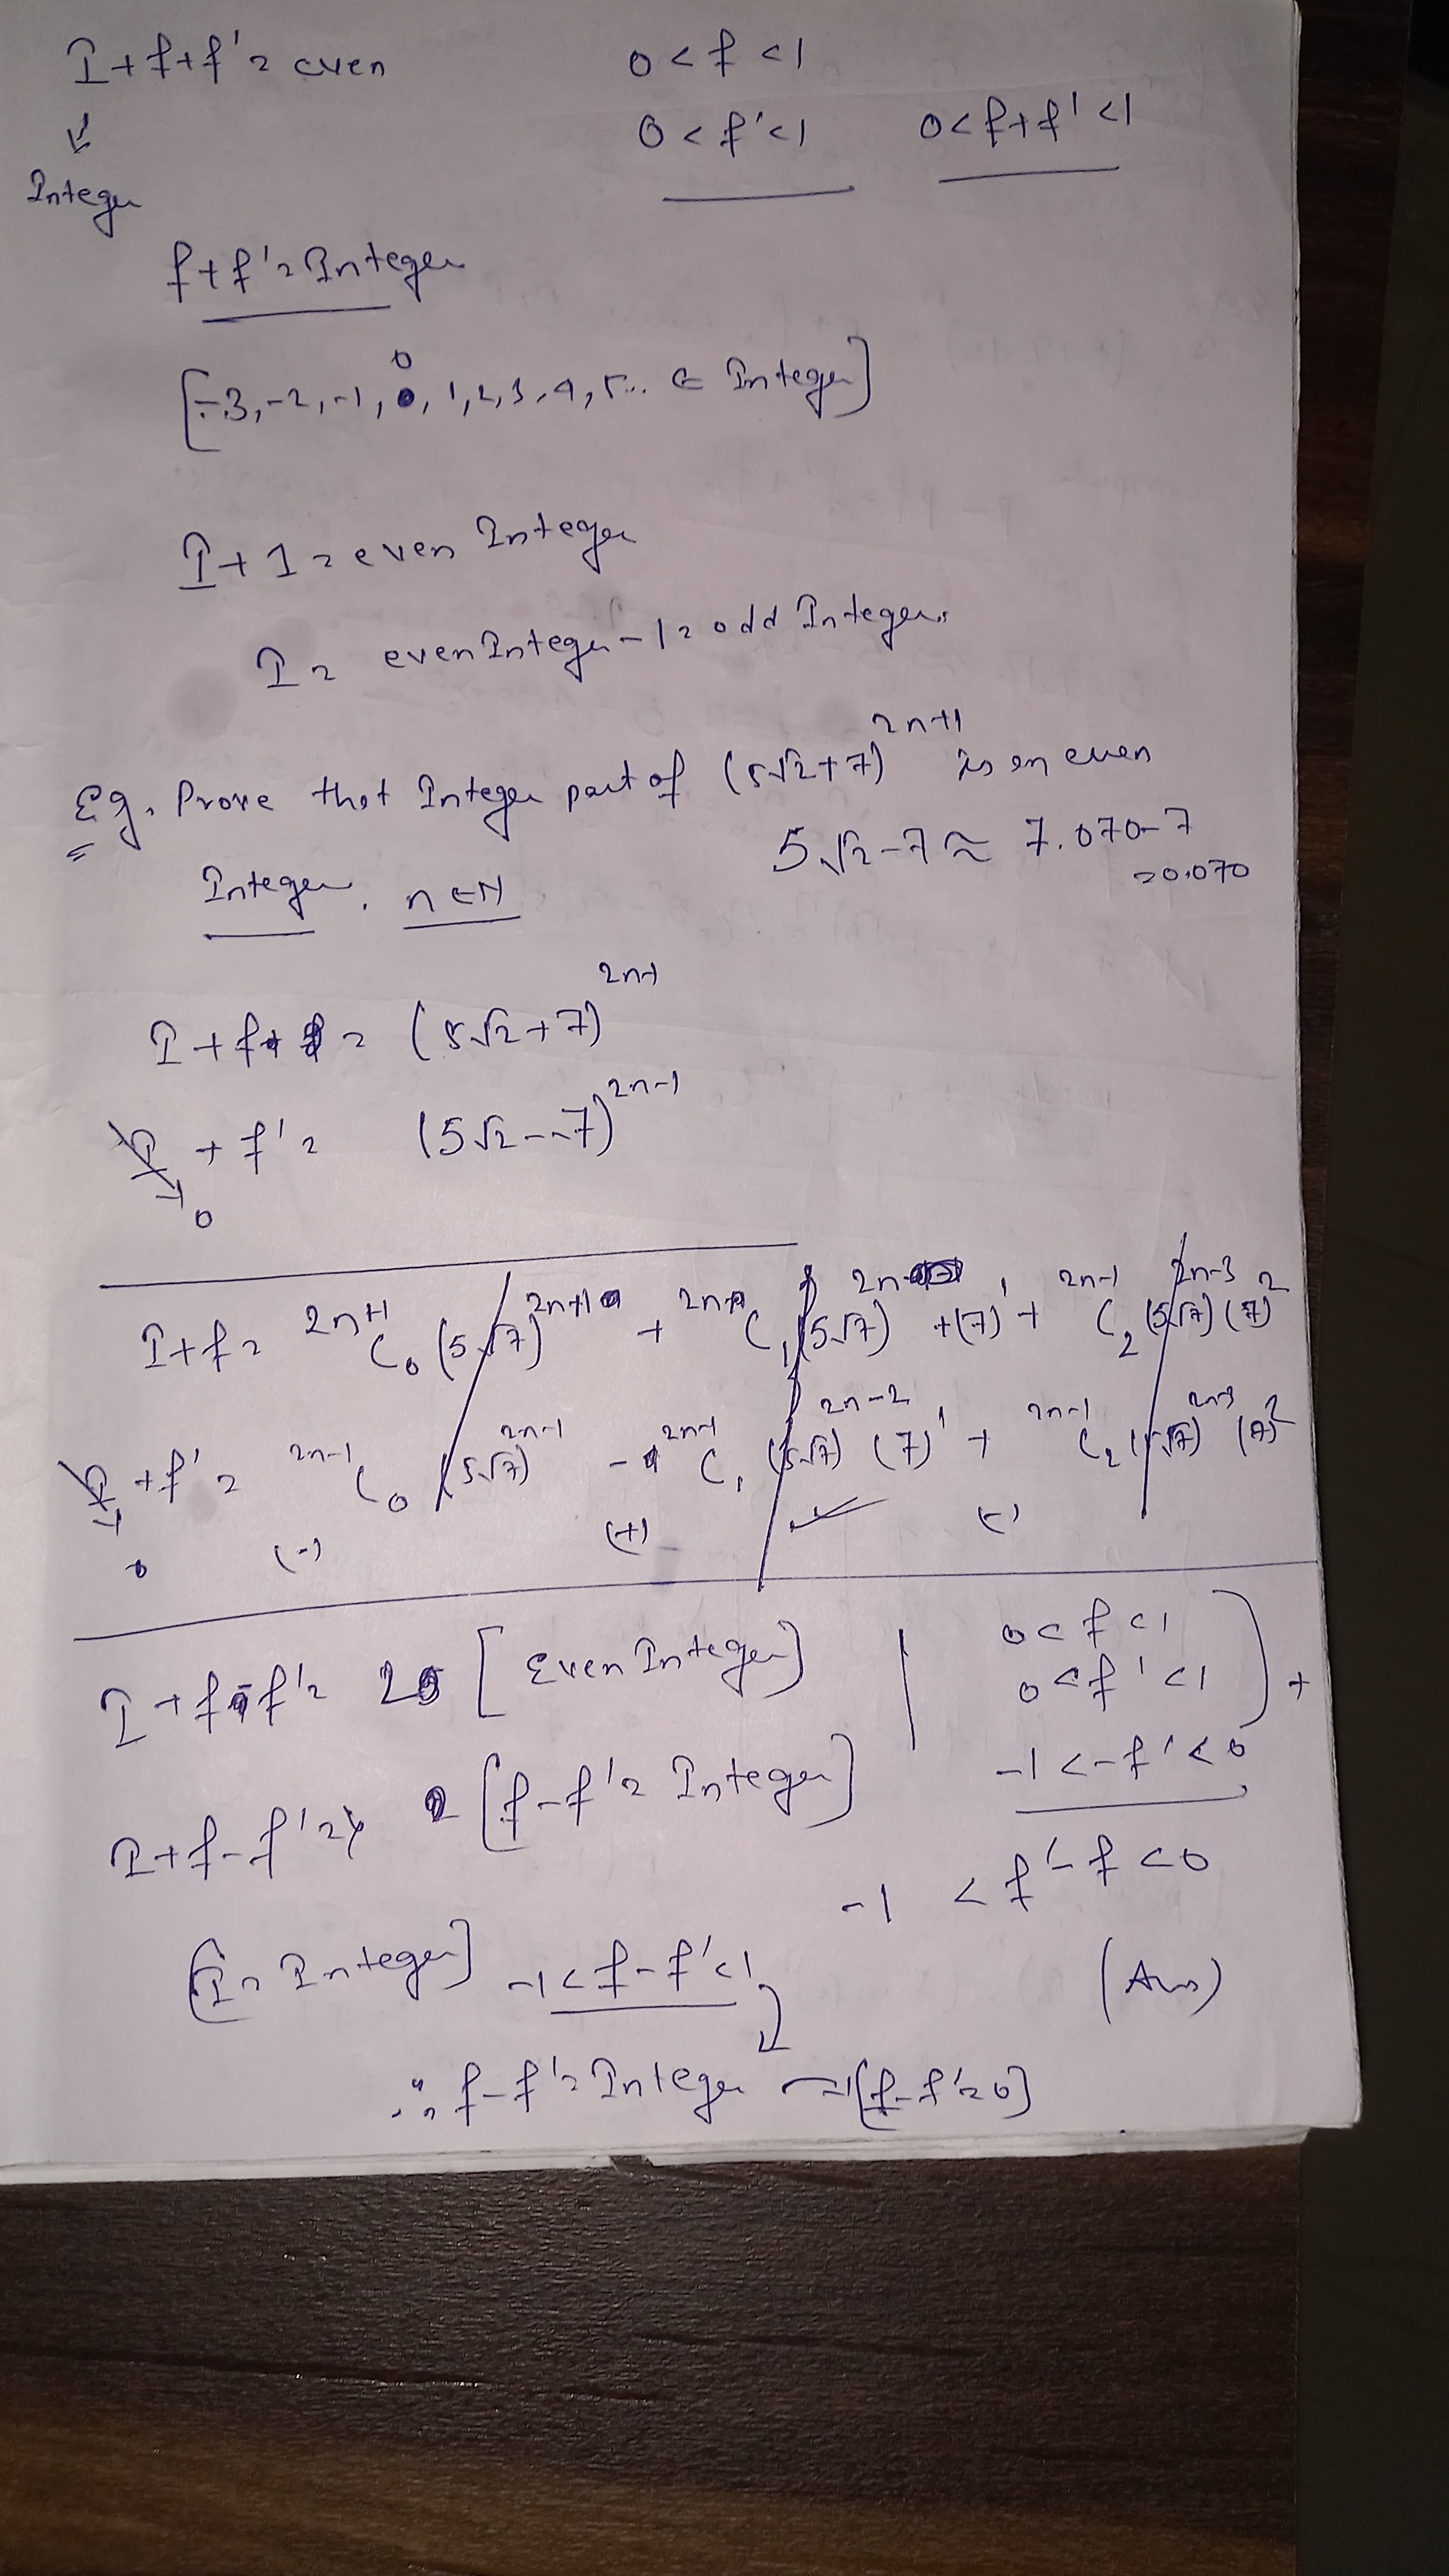 I + f + f' = even 0 < f < 1
0 < f' < 1 0 < f + f' < 1
Integer
f + f' = Integer
[-3, -2, -1, 0, 1, 2, 3, 4, 5... ∈ Integer]
0
I + 1 = even Integer
I = even Integer - 1 = odd Integer.
Eg. Prove that Integer part of (5√2+7)^2n+1 is an even
Integer. n ∈ N 5√2 - 7 ≈ 7.070 - 7
= 0.070
I + f = (5√2+7)^2n-1
I + f' = (5√2 - 7)^2n-1
0
I + f = 2n+1 C0 (5√7)^2n+1 + C1 (5√7) + (7)^1 + 2n-1 C2 (5√7)^2n-3 (7)^2
I + f' = 2n-1 C0 (5√7)^2n-1 - 2n-1 C1 (5√7)^2n-2 (7)^1 + 2n-1 C2 (5√7)^2n-3 (7)^2
0 (-) (+) (-)
I + f - f' = 2 [Even Integer] 0 < f < 1
0 < f' < 1 +
I + f - f' = [f - f' = Integer] -1 < -f' < 0
-1 < f' - f < 0
[I = Integer] -1 < f - f' < 1 (Ans)
∴ f - f' = Integer [f - f' = 0]